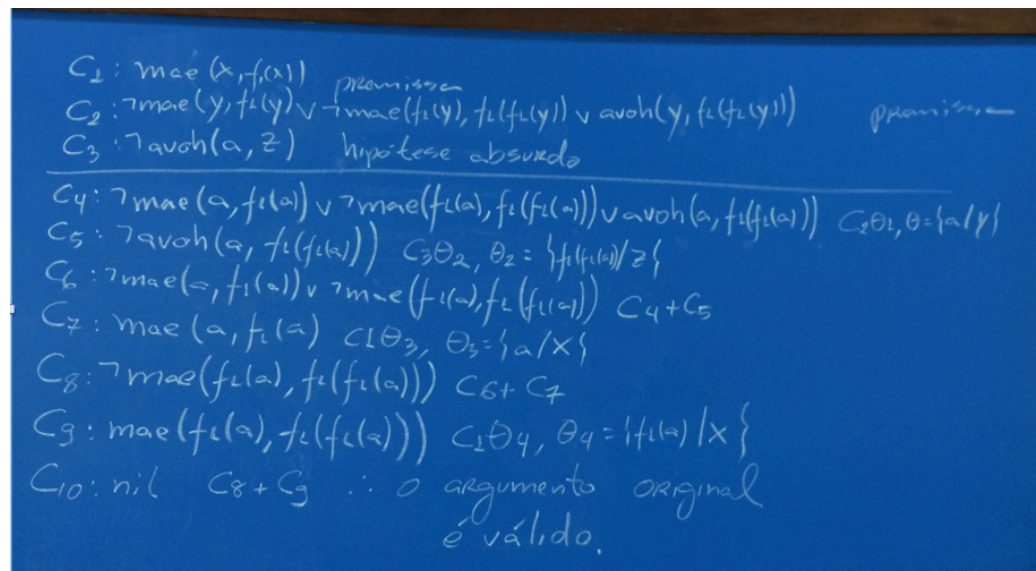 C1: mae(x,f1(x)) premissa
C2: ¬mae(y,f1(y) v ¬mae(f1(y), f1(f1(y)) v avoh(y, f1(f1(y))) premissa
C3: ¬avoh(a, z) hipótese absurdo
C4: ¬mae(a,f1(a)) v ¬mae(f1(a), f1(f1(a))) v avoh(a, f1(f1(a))) C2θ1, θ={a/y}
C5: ¬avoh(a, f1(f1(a))) C3θ2, θ2 = {f1(f1(a))/z}
C6: ¬mae(a,f1(a)) v ¬mae(f1(a),f1(f1(a))) C4+C5
C7: mae(a,f1(a) C1θ3, θ3={a/x}
C8: ¬mae(f1(a), f1(f1(a))) C6+C7
C9: mae(f1(a), f1(f1(a))) C1θ4, θ4={f1(a)/x}
C10: nil C8+C9 ∴ o argumento original
é válido.